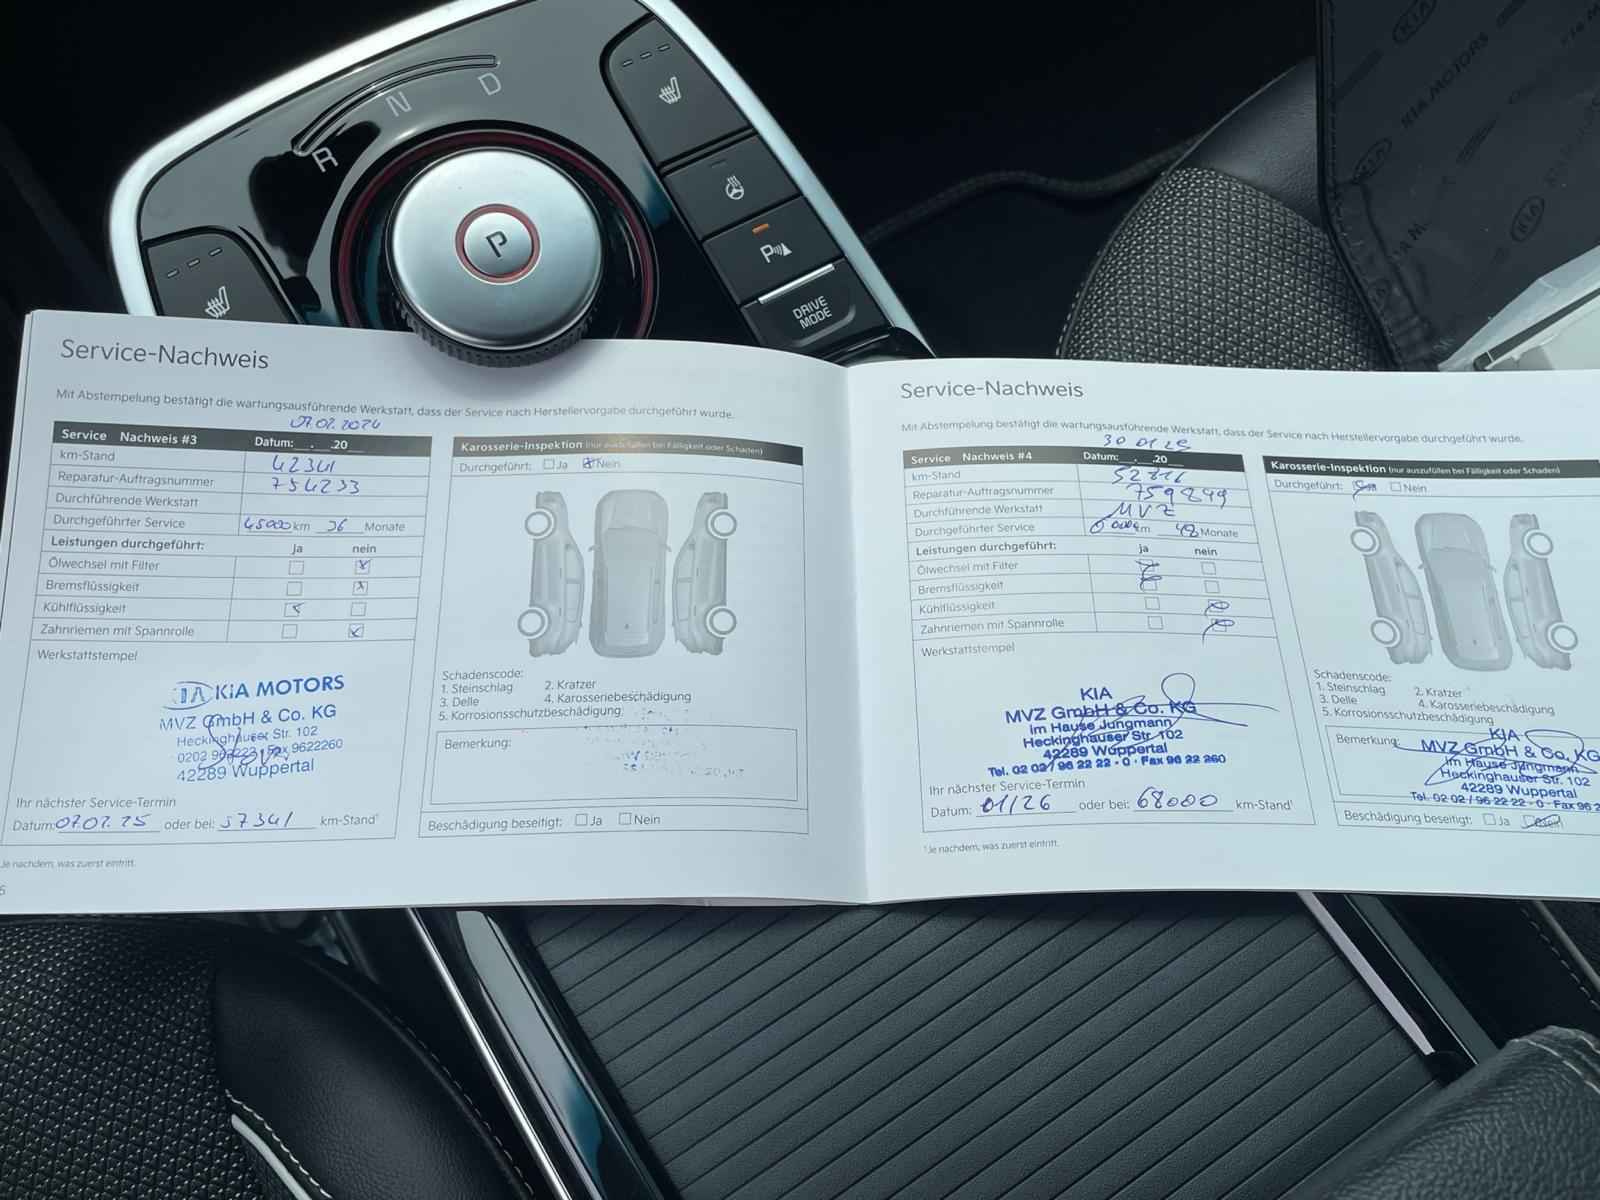 R N D
P
P
DRIVE
MODE
KIA
KIA MOTORS
KIA
KIA
Service-Nachweis
Mit Abstempelung bestätigt die wartungsausführende Werkstatt, dass der Service nach Herstellervorgabe durchgeführt wurde.
07.02.2024
Service Nachweis #3 Datum: . .20
km-Stand 42341
Reparatur-Auftragsnummer 754233
Durchführende Werkstatt
Durchgeführter Service 45000 km 36 Monate
Leistungen durchgeführt: ja nein
Ölwechsel mit Filter
Bremsflüssigkeit
Kühlflüssigkeit
Zahnriemen mit Spannrolle
Werkstattstempel
KIA MOTORS
MVZ GmbH & Co. KG
Heckinghauser Str. 102
0202 Fax 9622260
42289 Wuppertal
Ihr nächster Service-Termin
Datum: 07.02.25 oder bei: 57341 km-Stand¹
¹Je nachdem, was zuerst eintritt.
Karosserie-Inspektion (nur auszufüllen bei Fälligkeit oder Schäden)
Durchgeführt: Ja Nein
Schadenscode:
1. Steinschlag 2. Kratzer
3. Delle 4. Karosseriebeschädigung
5. Korrosionsschutzbeschädigung
Bemerkung:
Beschädigung beseitigt: Ja Nein
Service-Nachweis
Mit Abstempelung bestätigt die wartungsausführende Werkstatt, dass der Service nach Herstellervorgabe durchgeführt wurde.
30 01 25
Service Nachweis #4 Datum: . .20
km-Stand 52816
Reparatur-Auftragsnummer 759849
Durchführende Werkstatt MVZ
Durchgeführter Service km 48 Monate
Leistungen durchgeführt: ja nein
Ölwechsel mit Filter
Bremsflüssigkeit
Kühlflüssigkeit
Zahnriemen mit Spannrolle
Werkstattstempel
KIA
MVZ GmbH & Co. KG
Im Hause Jungmann
Heckinghauser Str. 102
42289 Wuppertal
Tel. 02 02 / 96 22 22 - 0 · Fax 96 22 260
Ihr nächster Service-Termin
Datum: 01/26 oder bei: 68000 km-Stand¹
¹Je nachdem, was zuerst eintritt.
Karosserie-Inspektion (nur auszufüllen bei Fälligkeit oder Schäden)
Durchgeführt: Ja Nein
Schadenscode:
1. Steinschlag 2. Kratzer
3. Delle 4. Karosseriebeschädigung
5. Korrosionsschutzbeschädigung
Bemerkung:
KIA
MVZ GmbH & Co. KG
Im Hause Jungmann
Heckinghauser Str. 102
42289 Wuppertal
Tel. 02 02 / 96 22 22 - 0 · Fax 96 2
Beschädigung beseitigt: Ja Nein